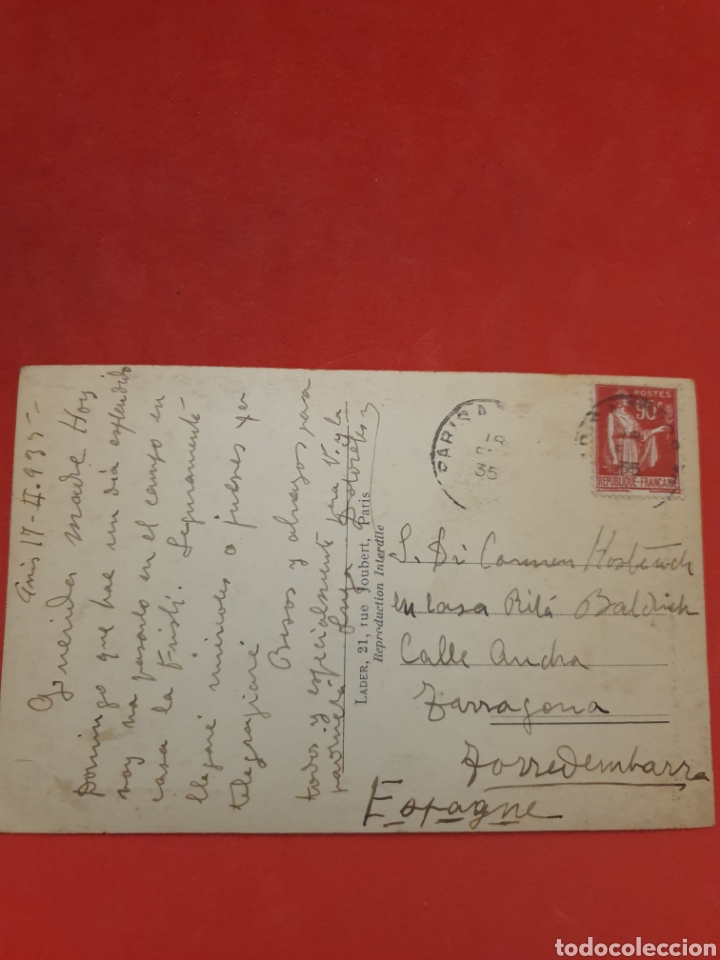 París 17-II-935-
Querida madre Hoy
Domingo que hace un día esplendido
voy ha pasarlo en el campo en
casa la. Seguramente
llegaré miércoles o jueves ya
telegrafiaré
Besos y abrazos para
todos y especialmente para V. y la
Dolores
LADER, 21, rue Joubert, Paris
Reproduction Interdite
PARIS
35
POSTES
90c
REPUBLIQUE-FRANÇAISE
S. Dª Carmen
en casa Ritá Baldrich
Calle Ancha
Tarragona
Torredembarra
Espagne
todocoleccion